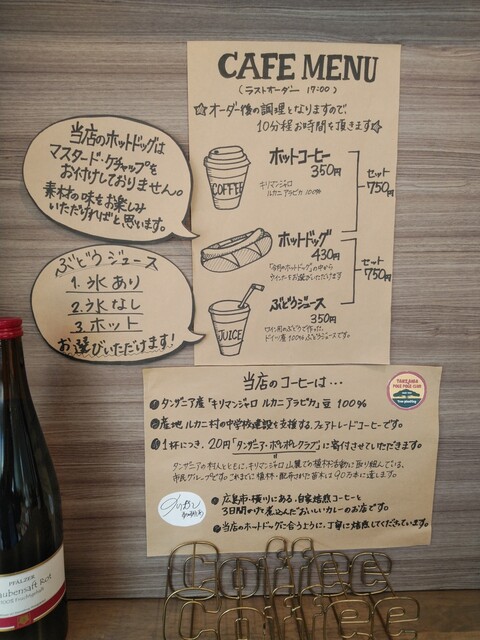 CAFE MENU
(ラストオーダー 17:00)
☆オーダー後の調理となりますので、
10分程お時間を頂きます☆
当店のホットドッグは
マスタード・ケチャップを
お付けしておりません。
素材の味をお楽しみ
いただければと、思います。
ホットコーヒー
350円
キリマンジャロ
ルカニアラビカ 100%
COFFEE
セット
750円
ホットドッグ
430円
「今月のホットドッグ」の中から
ウインナーをお選びいただけます
セット
750円
ぶどうジュース
350円
ワイン用のぶどうで作った、
ドイツ産100%ジュースです。
JUICE
ぶどうジュース
1. 氷あり
2. 氷なし
3. ホット
お選びいただけます!
当店のコーヒーは…
タンザニア産「キリマンジャロ ルカニアラビカ」豆 100%
産地 ルカニ村の中学校建設を支援する、フェアトレードコーヒーです。
1杯につき、20円「タンザニア・ポレポレクラブ」に寄付させていただきます。
タンザニアの村人とともに、キリマンジャロ山麓での植林活動に取り組んでいる、
市民グループです。これまでに植林・配布された苗木は90万本に達します。
広島市・横川にある、自家焙煎コーヒーと
3日間かけた煮込んだおいしいカレーのお店です。
当店のホットドッグに合うように、丁寧に焙煎してくださっています。
TANZANIA
POLE POLE CLUB
Tree planting
PFÄLZER
Traubensaft Rot
100% Fruchtgehalt
Coffee
Coffee